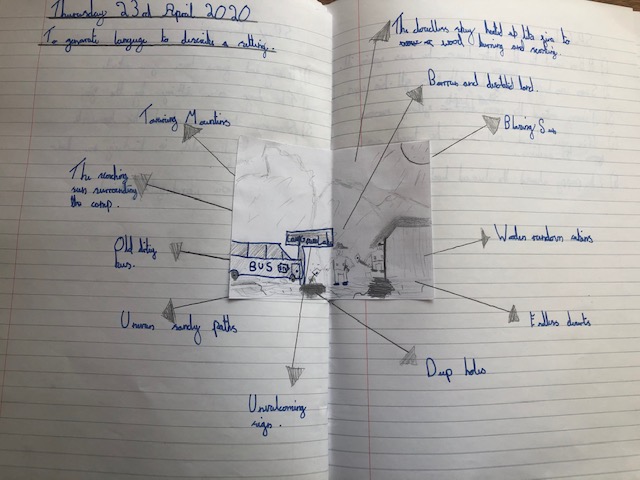 Thursday 23rd April 2020
To generate language to describe a setting.
Towering Mountins
The scorching
sun surrounding
the camp.
Old dirty
bus.
Uneven sandy paths
Unwelcoming
sign.
BUS
The cloudless sky
wood burning and
Barren and desolated land.
Blazing Sun
Wooden rundown cabins
Endless deserts
Deep holes